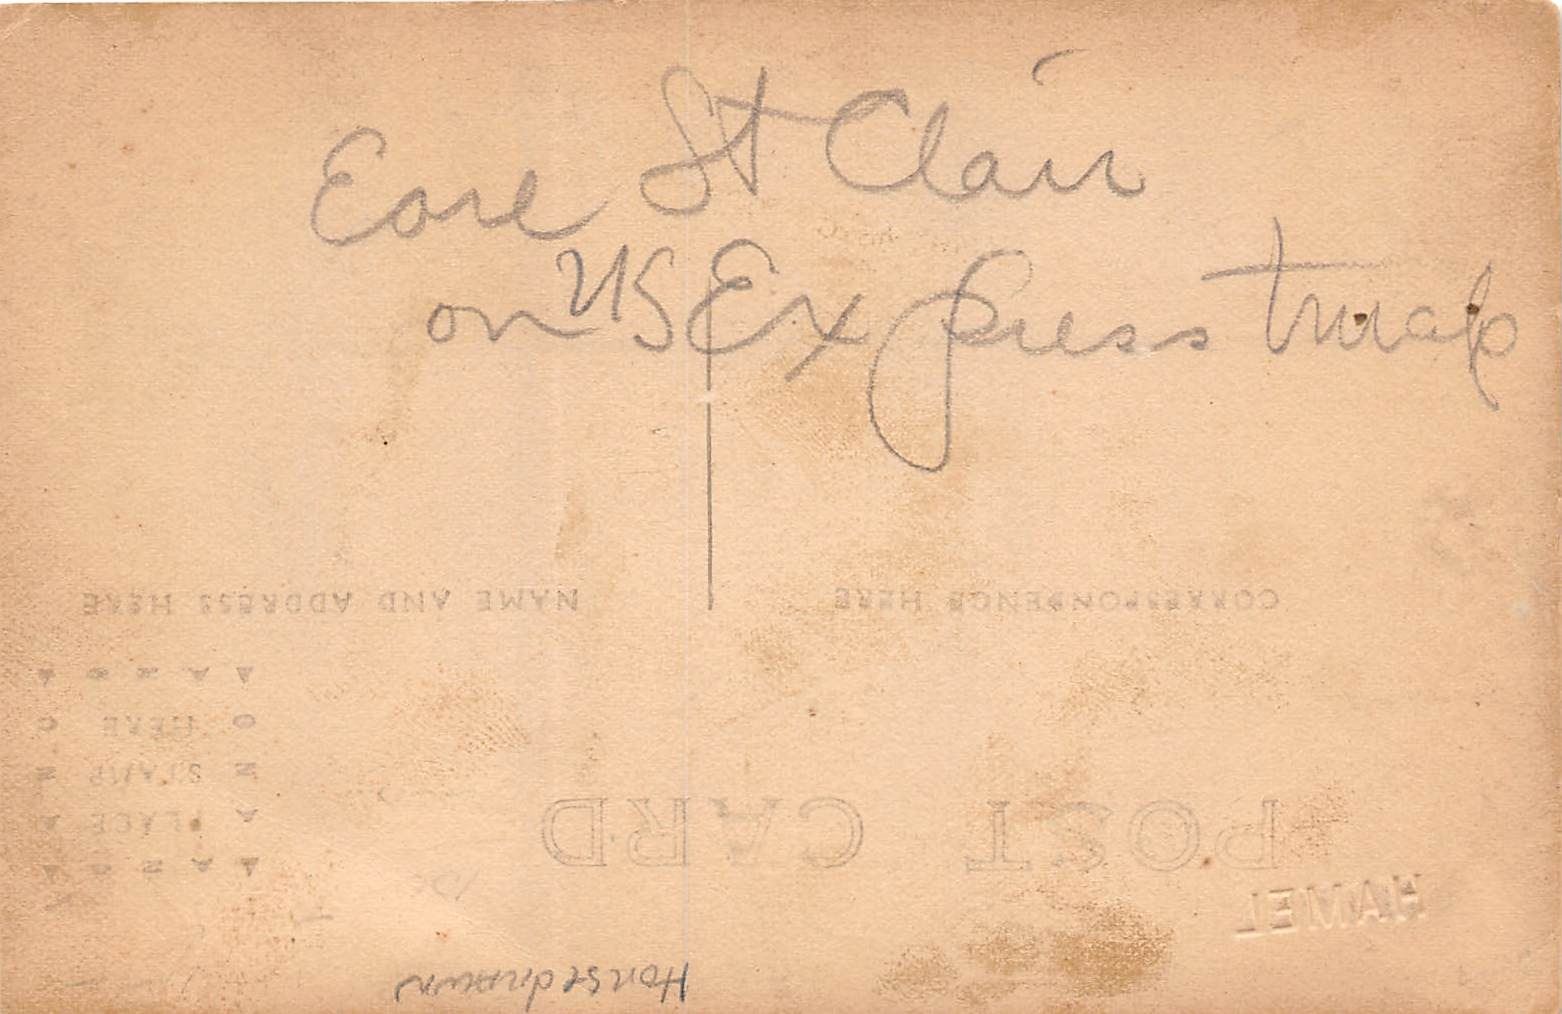 Earl St Clair
on US Express truck
CORRESPONDENCE HERE
NAME AND ADDRESS HERE
POST CARD
PLACE
STAMP
HERE
HAMEL
Horsedrawn